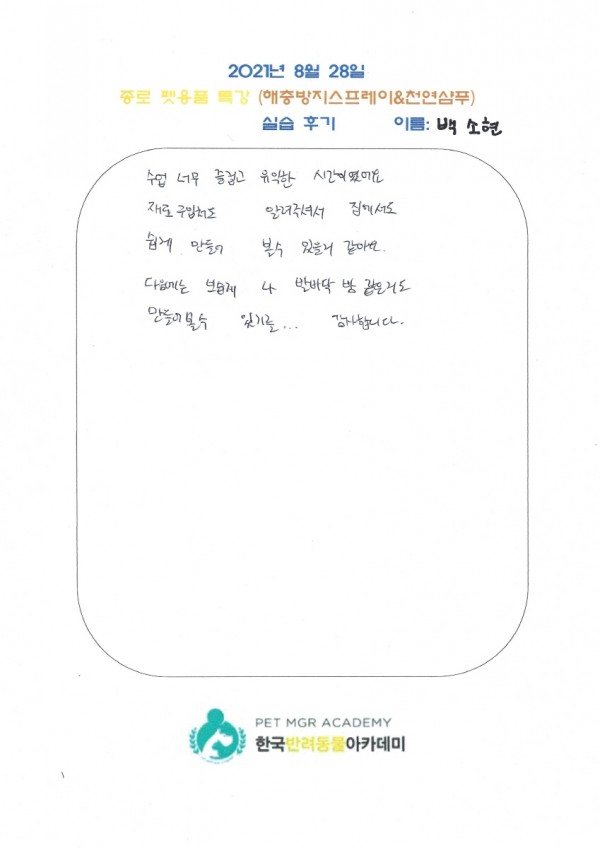 2021년 8월 28일
종로 펫용품 특강 (해충방지스프레이&천연샴푸)
실습 후기 이름: 백 소현
수업 너무 즐겁고 유익한 시간이였어요
재료구입처도 알려주셔서 집에서도
쉽게 만들어 볼수 있을거 같아요.
다음에는 보습제 나 발바닥 밤 같은거도
만들어볼수 있기를... 감사합니다.
PET MGR ACADEMY
한국반려동물아카데미